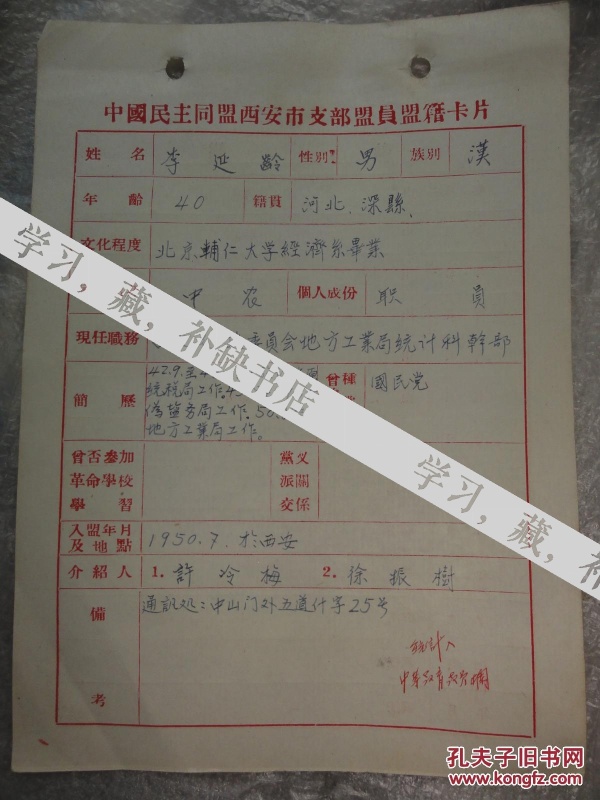 中國民主同盟西安市支部盟員盟籍卡片
姓名 李延齡 性別 男 族別 漢
年齡 40 籍貫 河北、深縣、
文化程度 北京輔仁大学經濟系畢業
中农 個人成份 职員
現任職務 委員会地方工業局統计科幹部
簡歷 42.9.至4
統税局工作.4
偽盐务局工作. 50.
地方工業局工作。
曾種 國民党
曾否參加革命學校學習
黨义派關交係
入盟年月及地點 1950.7.於西安
介紹人 1. 許冷梅 2. 徐振樹
備考 通訊处：中山门外五道什字25号
学习，藏，补缺书店
学习，藏，补缺
孔夫子旧书网
www.kongfz.com